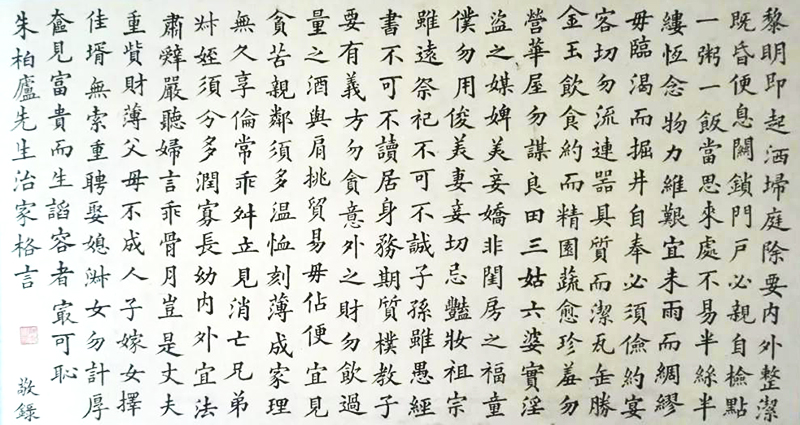 黎明即起洒埽庭除要内外整潔
既昏便息關鎖門戶必親自檢點
一粥一飯當思來處不易半絲半
縷恆念物力維艱宜未雨而綢繆
毋臨渴而掘井自奉必須儉約宴
客切勿流連器具質而潔瓦缶勝
金玉飲食約而精園蔬愈珍羞勿
營華屋勿謀良田三姑六婆實淫
盜之媒婢美妾嬌非閨房之福童
僕勿用俊美妻妾切忌豔妝祖宗
雖遠祭祀不可不誠子孫雖愚經
書不可不讀居身務期質樸教子
要有義方勿貪意外之財勿飲過
量之酒與肩挑貿易毋佔便宜見
貧苦親鄰須多温恤刻薄成家理
無久享倫常乖舛立見消亡兄弟
叔姪須分多潤寡長幼内外宜法
肅辭嚴聽婦言乖骨月豈是丈夫
重貲財薄父母不成人子嫁女擇
佳壻無索重聘娶媳淑女勿計厚
奩見富貴而生謟容者冣可恥
朱柏廬先生治家格言 敬錄